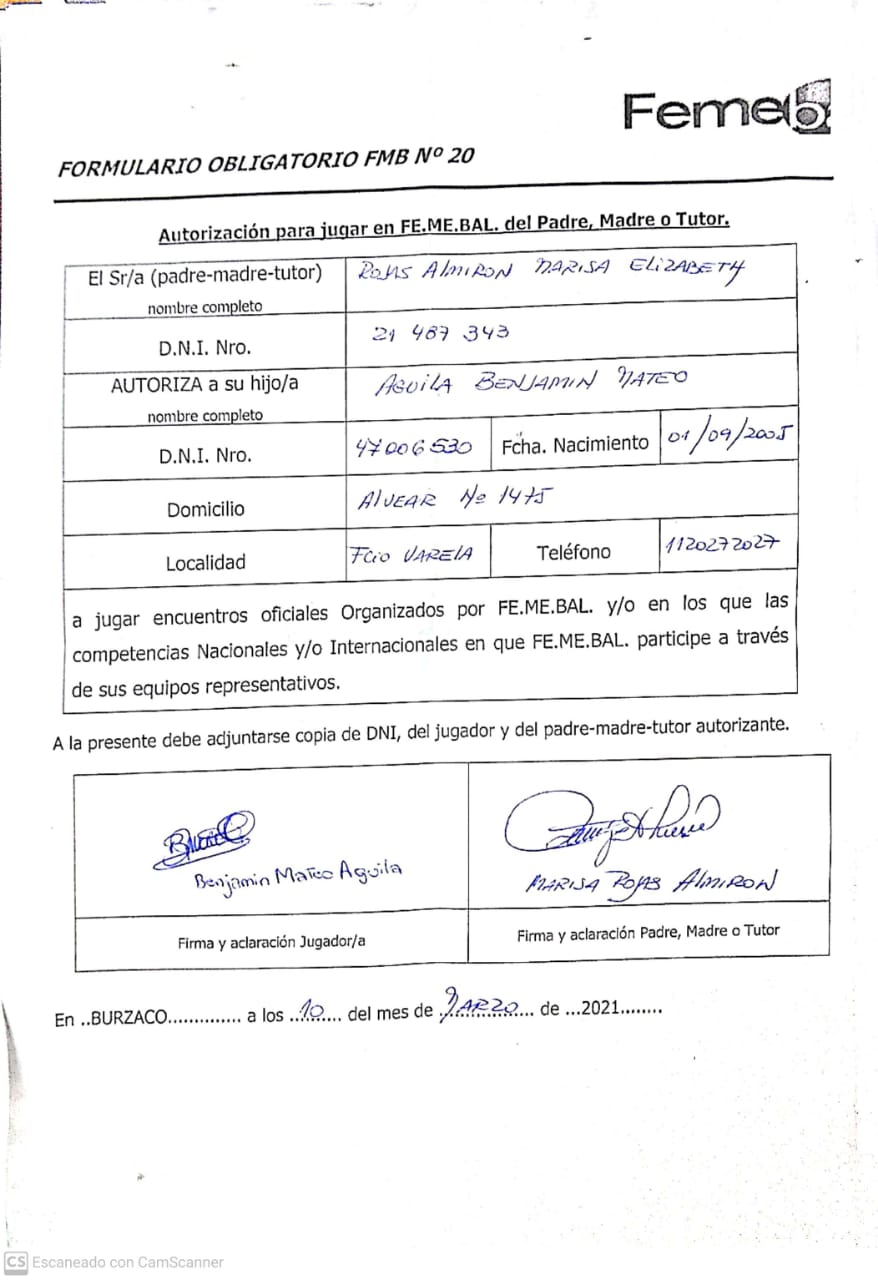 Femeb
FORMULARIO OBLIGATORIO FMB Nº 20
Autorización para jugar en FE.ME.BAL. del Padre, Madre o Tutor.
El Sr/a (padre-madre-tutor) ROJAS ALMIRON MARISA ELIZABETH
nombre completo
D.N.I. Nro. 21 487 343
AUTORIZA a su hijo/a AGUILA BENJAMIN MATEO
nombre completo
D.N.I. Nro. 47006530 Fcha. Nacimiento 01/09/2005
Domicilio ALVEAR Nº 1475
Localidad FCIO VARELA Teléfono 1120272027
a jugar encuentros oficiales Organizados por FE.ME.BAL. y/o en los que las
competencias Nacionales y/o Internacionales en que FE.ME.BAL. participe a través
de sus equipos representativos.
A la presente debe adjuntarse copia de DNI, del jugador y del padre-madre-tutor autorizante.
Benjamin Mateo Aguila MARISA ROJAS ALMIRON
Firma y aclaración Jugador/a Firma y aclaración Padre, Madre o Tutor
En ..BURZACO.............. a los ..10..... del mes de .MARZO... de ...2021........
CS Escaneado con CamScanner